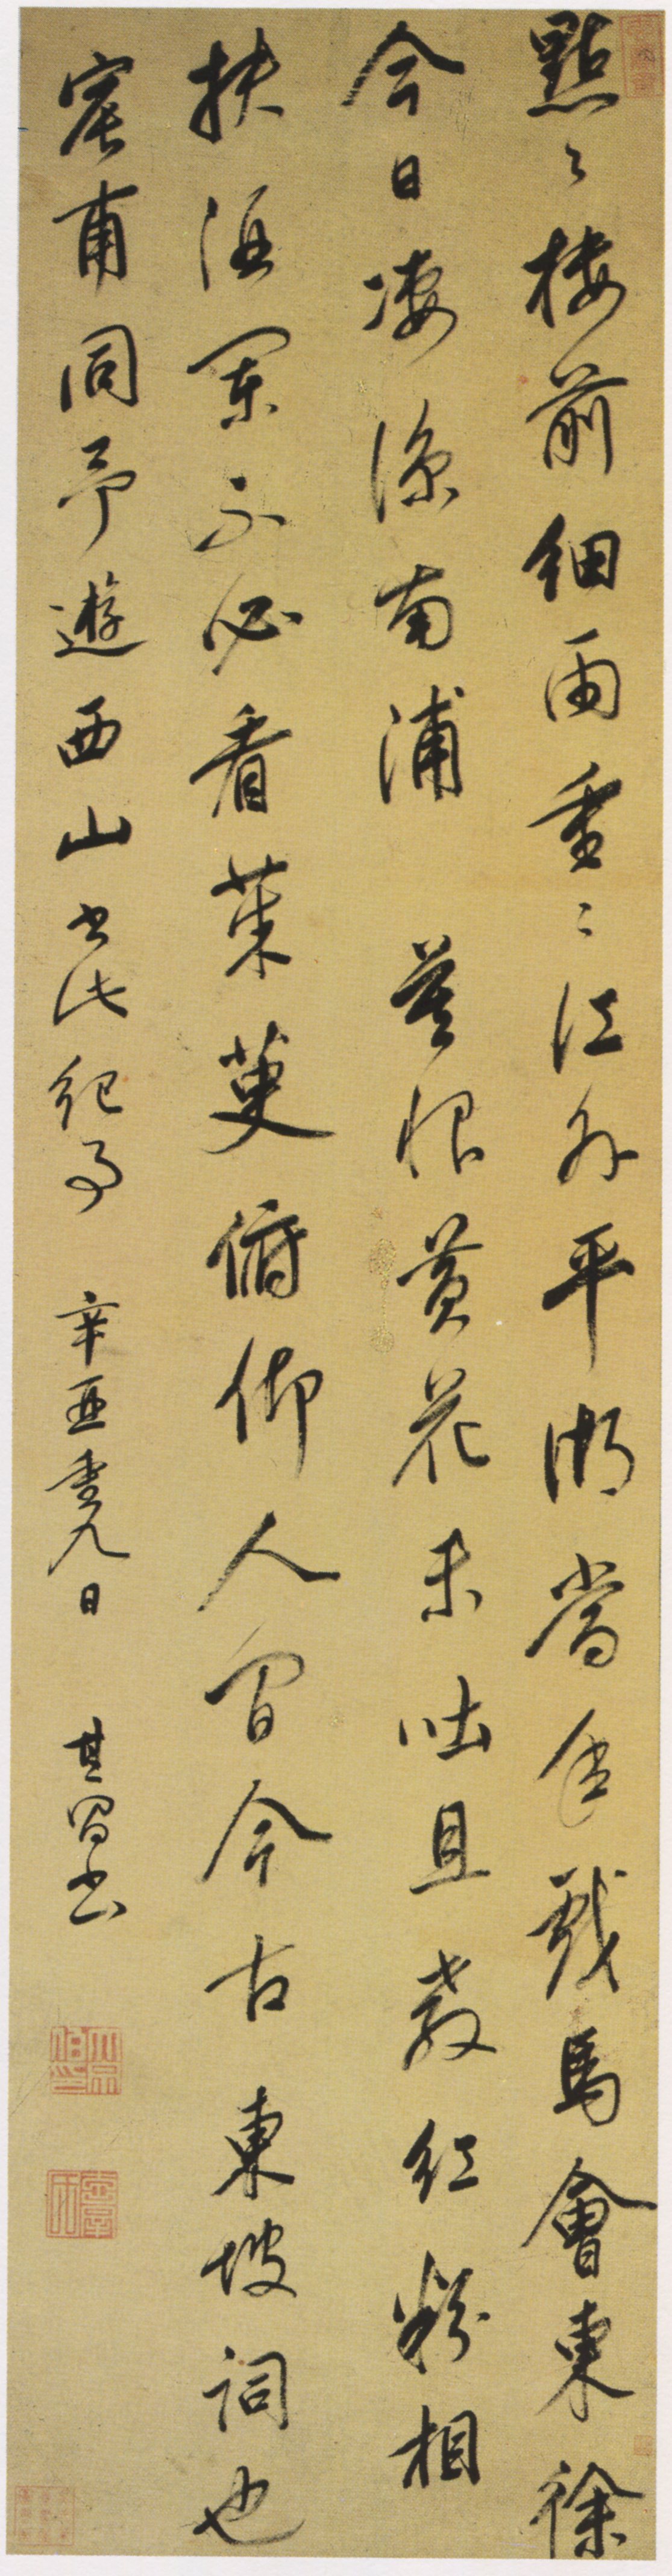 點々樓前細雨重々江外平湖當年戲馬會東徐
今日凄涼南浦 莫恨黃花未吐且教紅粉相
扶酒闌不必看茱萸俯仰人間今古東坡詞也
甫同予遊西山書此紀事 辛亥重九日 其昌書